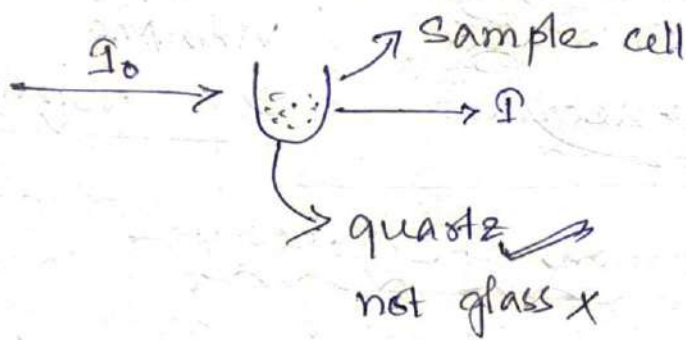 Sample cell
I₀
I
quartz ✓
not glass x